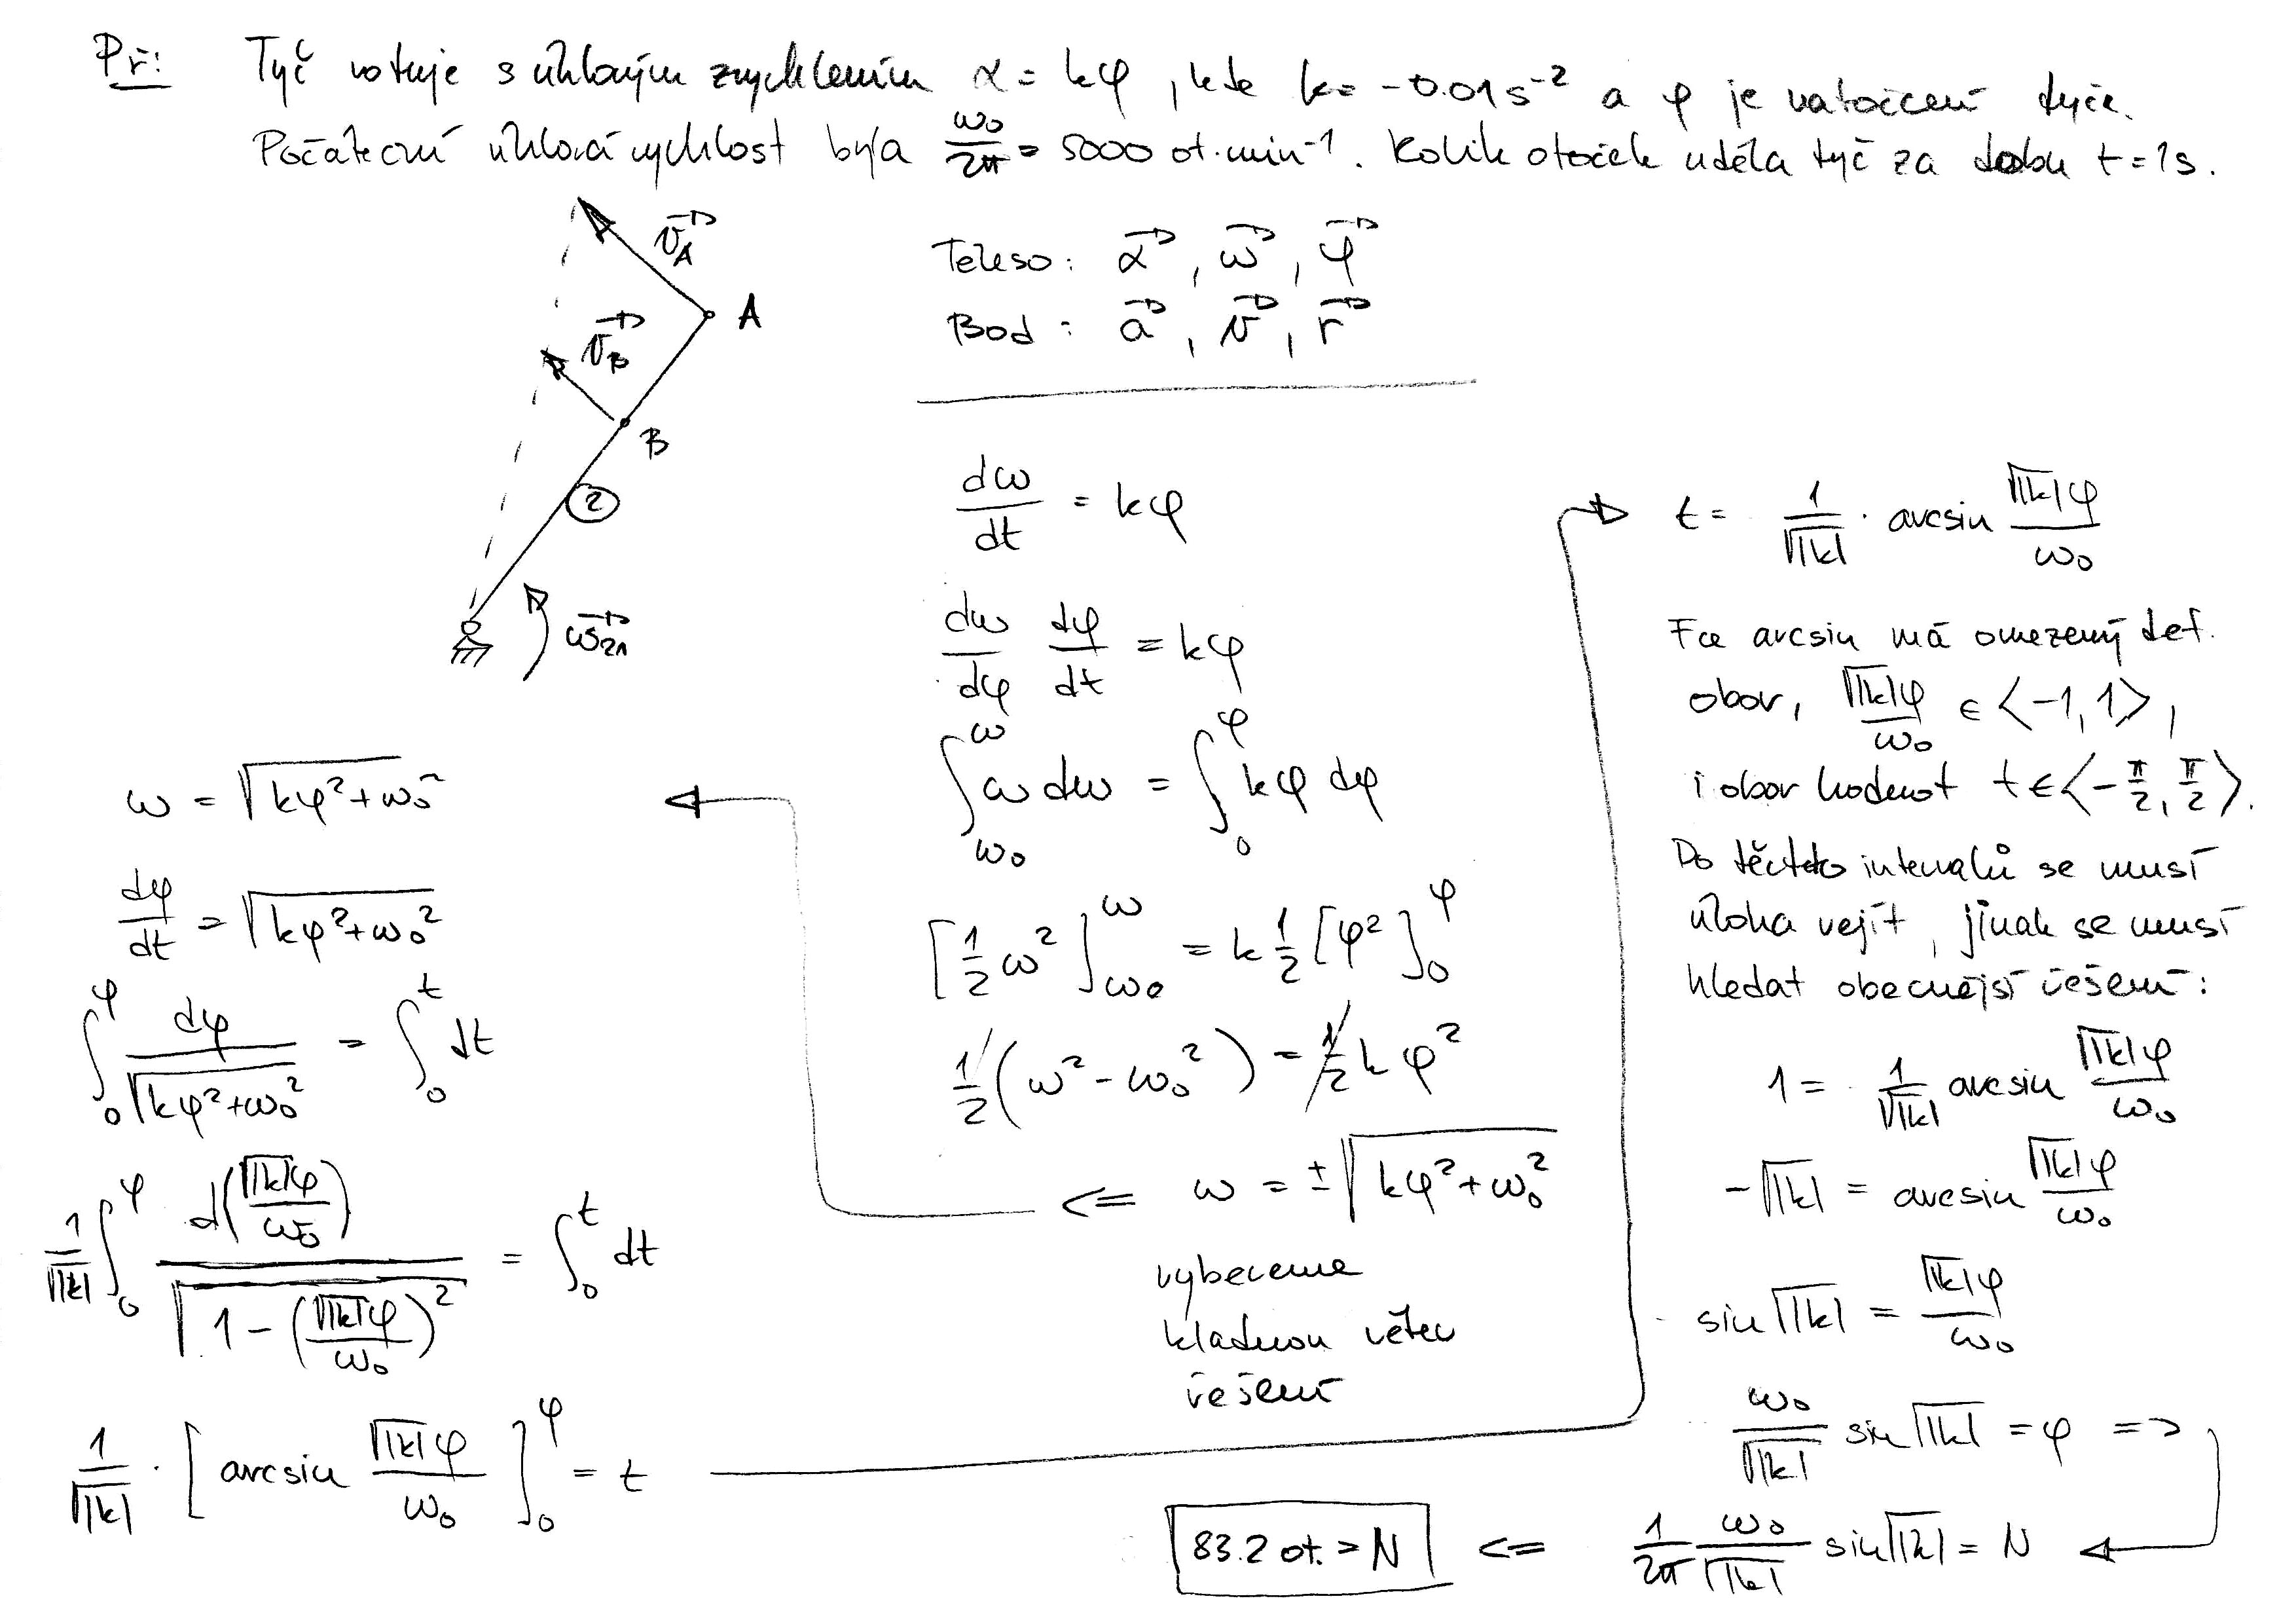 Př: Tyč rotuje s úhlovým zrychlením α = kφ , kde k = -0.01 s⁻² a φ je natočení tyče.
Počáteční úhlová rychlost byla ω₀/2π = 5000 ot.min⁻¹. Kolik otoček udělá tyč za dobu t = 1s.
v⃗_A
A
v⃗_B
B
2
ω⃗₂₁
Těleso: α⃗, ω⃗, φ⃗
Bod: a⃗, v⃗, r⃗
dω/dt = kφ
dω/dφ dφ/dt = kφ
∫_{ω₀}^{ω} ω dω = ∫_0^φ kφ dφ
[1/2 ω²]_{ω₀}^{ω} = k 1/2 [φ²]_0^φ
1/2 (ω² - ω₀²) = 1/2 k φ²
<= ω = ±√(kφ² + ω₀²)
vybereme
kladnou větev
řešení
ω = √(kφ² + ω₀²)
dφ/dt = √(kφ² + ω₀²)
∫_0^φ dφ/√(kφ² + ω₀²) = ∫_0^t dt
1/√|k| ∫_0^φ d(√|k|φ/ω₀)/√(1 - (√|k|φ/ω₀)²) = ∫_0^t dt
1/√|k| · [arcsin √|k|φ/ω₀]_0^φ = t
t = 1/√|k| · arcsin √|k|φ/ω₀
Fce arcsin má omezený def.
obor, √|k|φ/ω₀ ∈ <-1,1>,
i obor hodnot t ∈ <-π/2, π/2>.
Do těchto intervalů se musí
úloha vejít, jinak se musí
hledat obecnější řešení:
1 = 1/√|k| arcsin √|k|φ/ω₀
-√|k| = arcsin √|k|φ/ω₀
sin √|k| = √|k|φ/ω₀
ω₀/√|k| sin √|k| = φ =>
1/2π ω₀/√|k| sin √|k| = N
<=
83.2 ot. = N